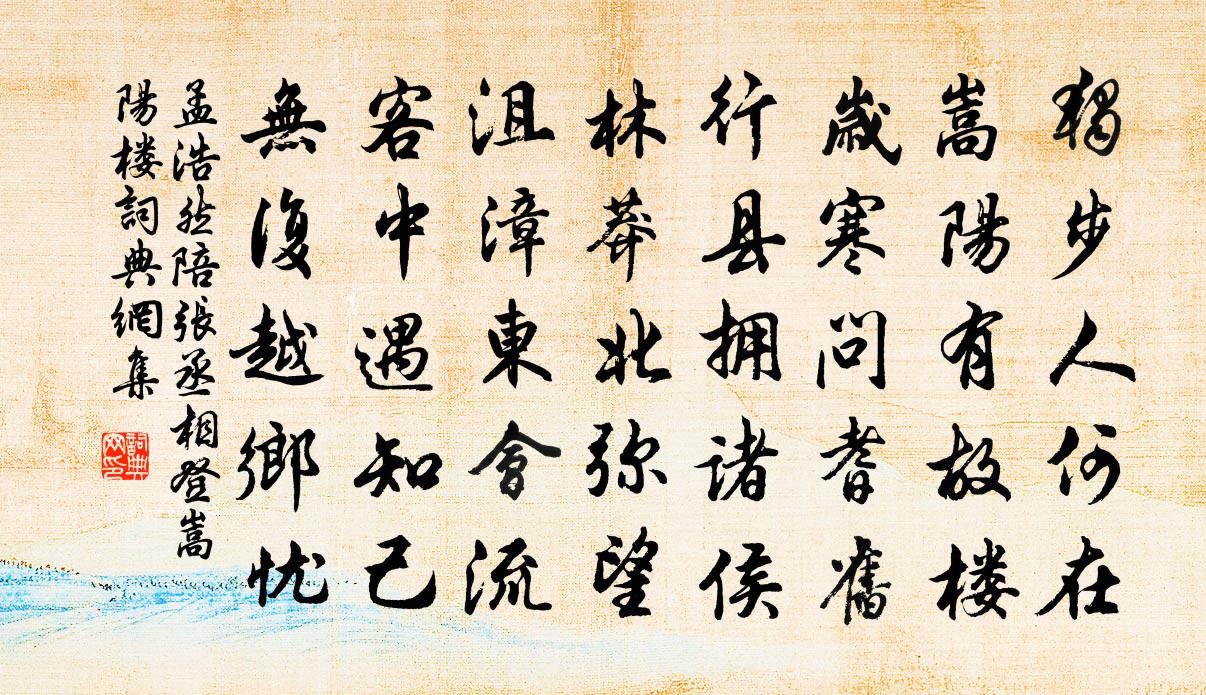 獨步人何在
嵩陽有故楼
歲寒問耆舊
行县拥諸侯
林莽北弥望
沮漳東會流
客中遇知己
無復越鄉忧
孟浩然陪張丞相登嵩
陽楼詞典網集
詞典
网印